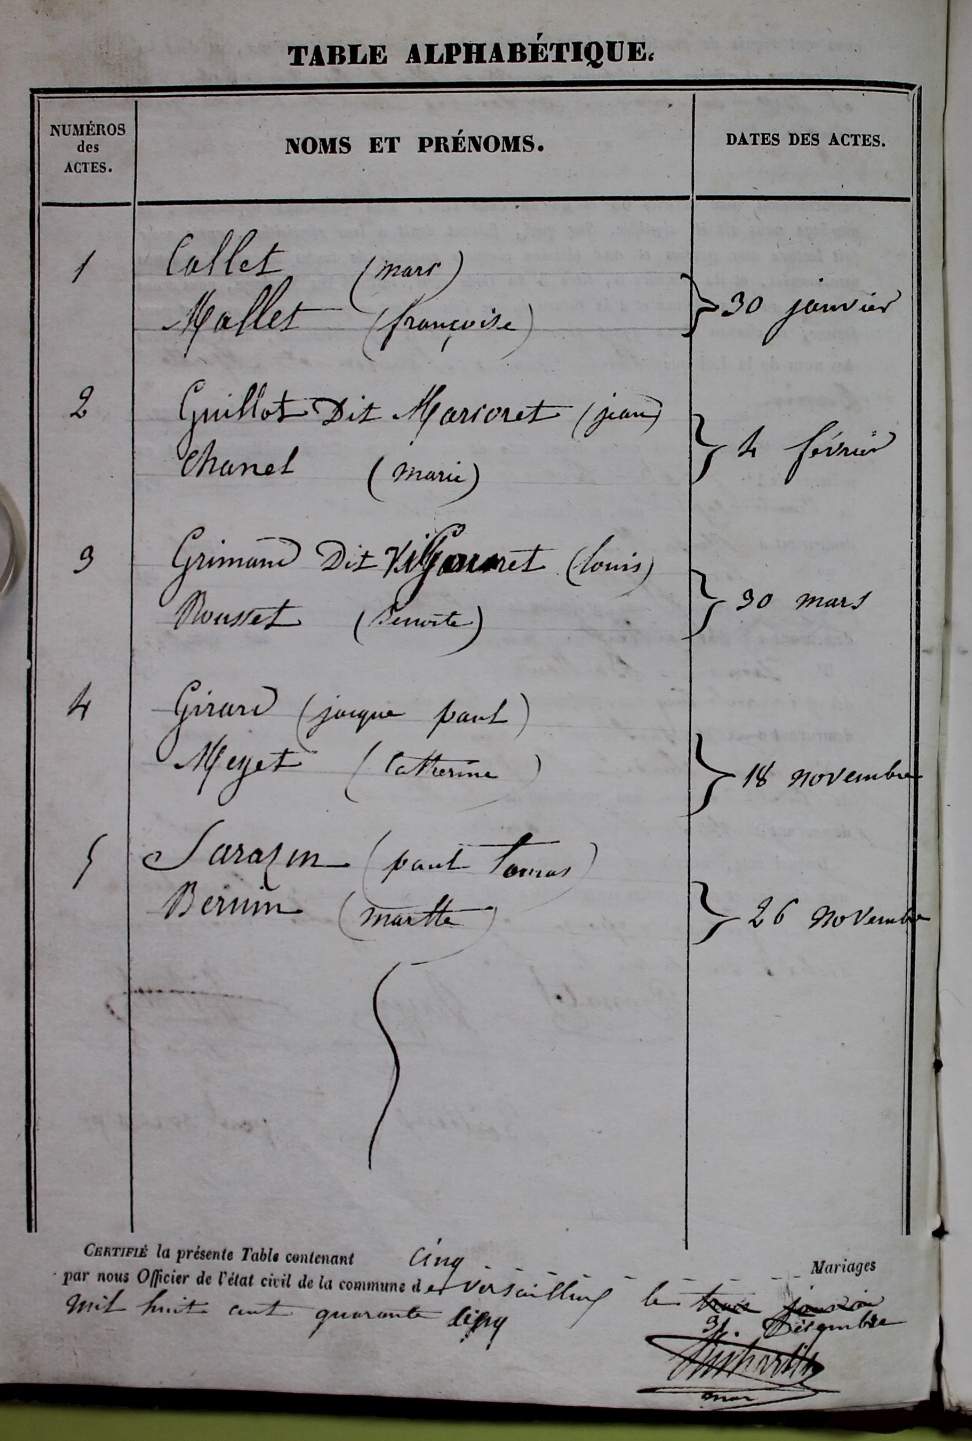 TABLE ALPHABÉTIQUE.
NUMÉROS des ACTES.
NOMS ET PRÉNOMS.
DATES DES ACTES.
1 Collet (marc)
Mallet (françoise) } 30 janvier
2 Guillot Dit Marioret (jean)
Chanel (marie) } 4 février
3 Grimand Dit (louis)
Rousset (Benoite) } 30 mars
4 Girard (jacque paul)
Meyet (Catherine) } 18 novembre
5 Sarazin (paul Tomas)
Bernin (martte) } 26 novembre
CERTIFIÉ la présente Table contenant cinq Mariages
par nous Officier de l'état civil de la commune de versailleux le trois janvier
31 Décembre
mil huit cent quarante cinq